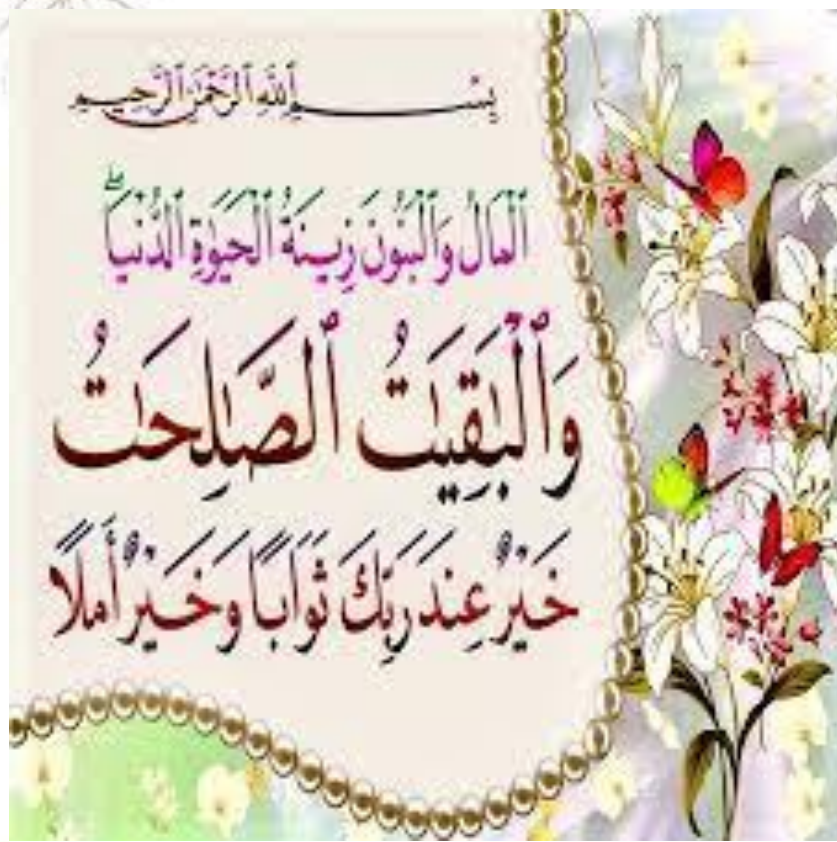 بِسْمِ ٱللَّهِ ٱلرَّحْمَٰنِ ٱلرَّحِيمِ
ٱلْمَالُ وَٱلْبَنُونَ زِينَةُ ٱلْحَيَوٰةِ ٱلدُّنْيَا ۖ
وَٱلْبَٰقِيَٰتُ ٱلصَّٰلِحَٰتُ
خَيْرٌ عِندَ رَبِّكَ ثَوَابًا وَخَيْرٌ أَمَلًا